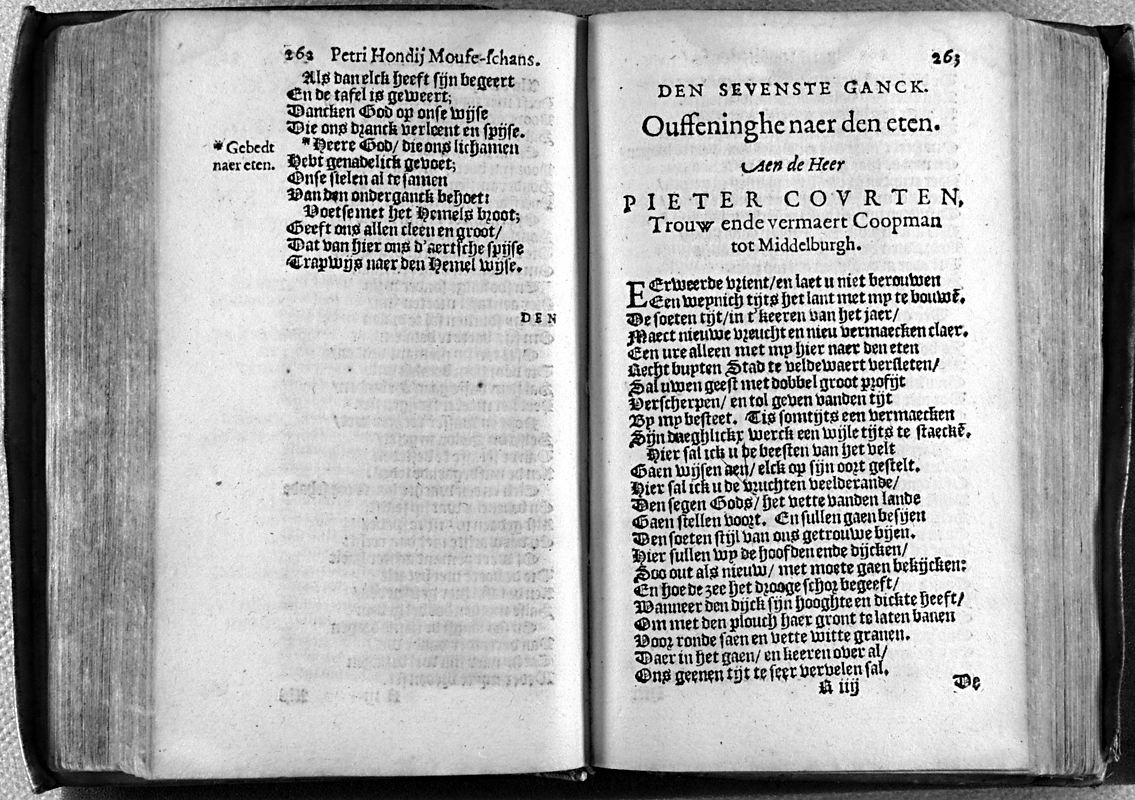 262 Petri Hondij Moufe-schans.
Als dan elck heeft sijn begeert
En de tafel is geweert;
Dancken God op onse wijse
Die ons dranck verleent en spijse.
* Gebedt
naer eten.
*Heere God/ die ons lichamen
Hebt genadelick gevoet;
Onse sielen al te samen
Van den onderganck behoet:
Voetse met het Hemels broot;
Geeft ons allen cleen en groot/
Dat van hier ons d'aertsche spijse
Trapwijs naer den Hemel wijse.
DEN
263
DEN SEVENSTE GANCK.
Ouffeninghe naer den eten.
Aen de Heer
PIETER COVRTEN,
Trouw ende vermaert Coopman
tot Middelburgh.
EErweerde vrient/en laet u niet berouwen
Een weynich tijts het lant met my te bouwē.
De soeten tijt/in t'keeren van het jaer/
Maect nieuwe vreucht en nieu vermaecken claer.
Een ure alleen met my hier naer den eten
Recht buyten Stad te veldewaert versleten/
Sal uwen geest met dobbel groot profijt
Verscherpen/ en tol geven vanden tijt
By my besteet. Tis somtijts een vermaecken
Sijn daeghlickx werck een wijle tijts te staeckē.
Hier sal ick u de beesten van het velt
Gaen wijsen aen/ elck op sijn oort gestelt.
Hier sal ick u de vruchten veelderande/
Den segen Gods/ het vette vanden lande
Gaen stellen voort. En sullen gaen besijen
Den soeten stijl van ons getrouwe bijen.
Hier sullen wy de hoofden ende dijcken/
Soo out als nieuw/ met moete gaen bekijcken:
En hoe de zee het drooge schor begeeft/
Wanneer den dijck sijn hooghte en dickte heeft/
Om met den plouch haer gront te laten banen
Voor ronde saen en vette witte granen.
Daer in het gaen/ en keeren over al/
Ons geenen tijt te seer vervelen sal.
R iiij
De